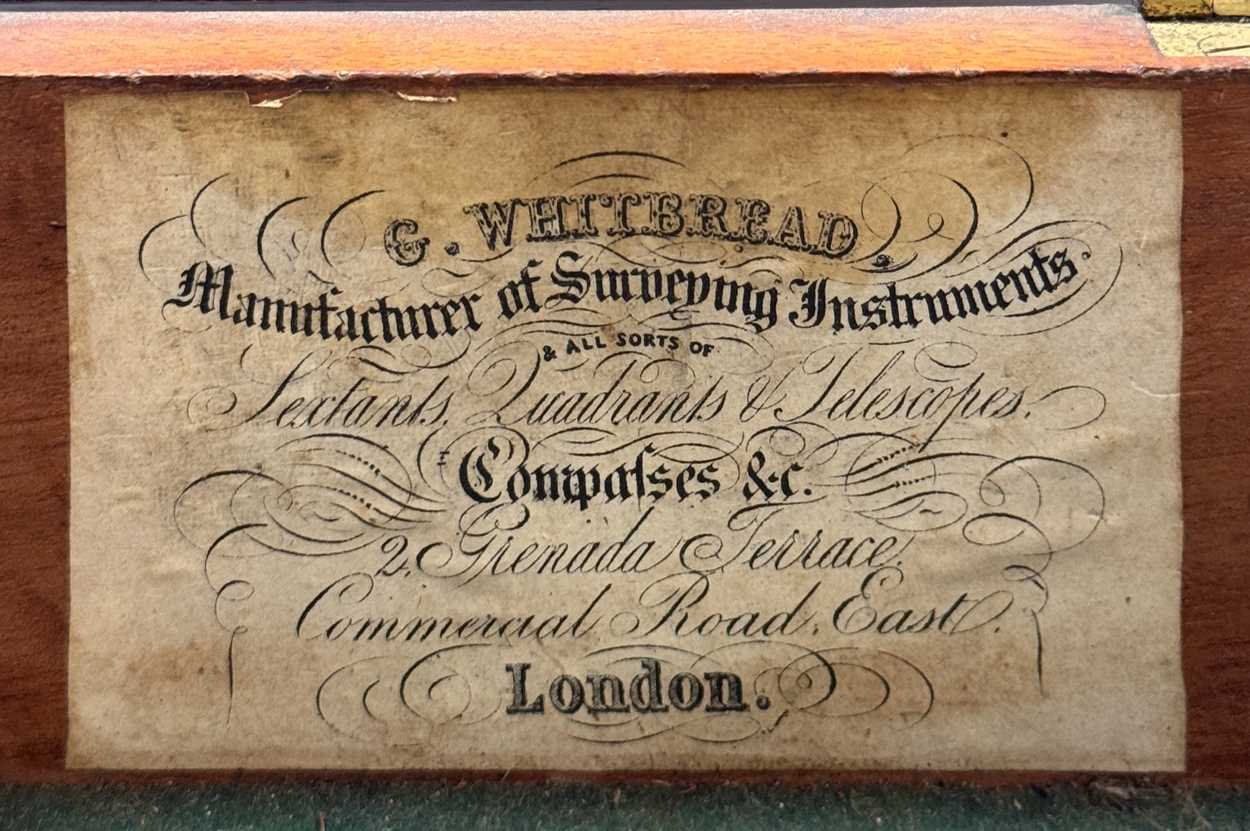 G. WHITBREAD.
Manufacturer of Surveying Instruments.
& ALL SORTS OF
Sextants, Quadrants & Telescopes.
Compaſses &c.
2, Grenada Terrace,
Commercial Road, East.
London.